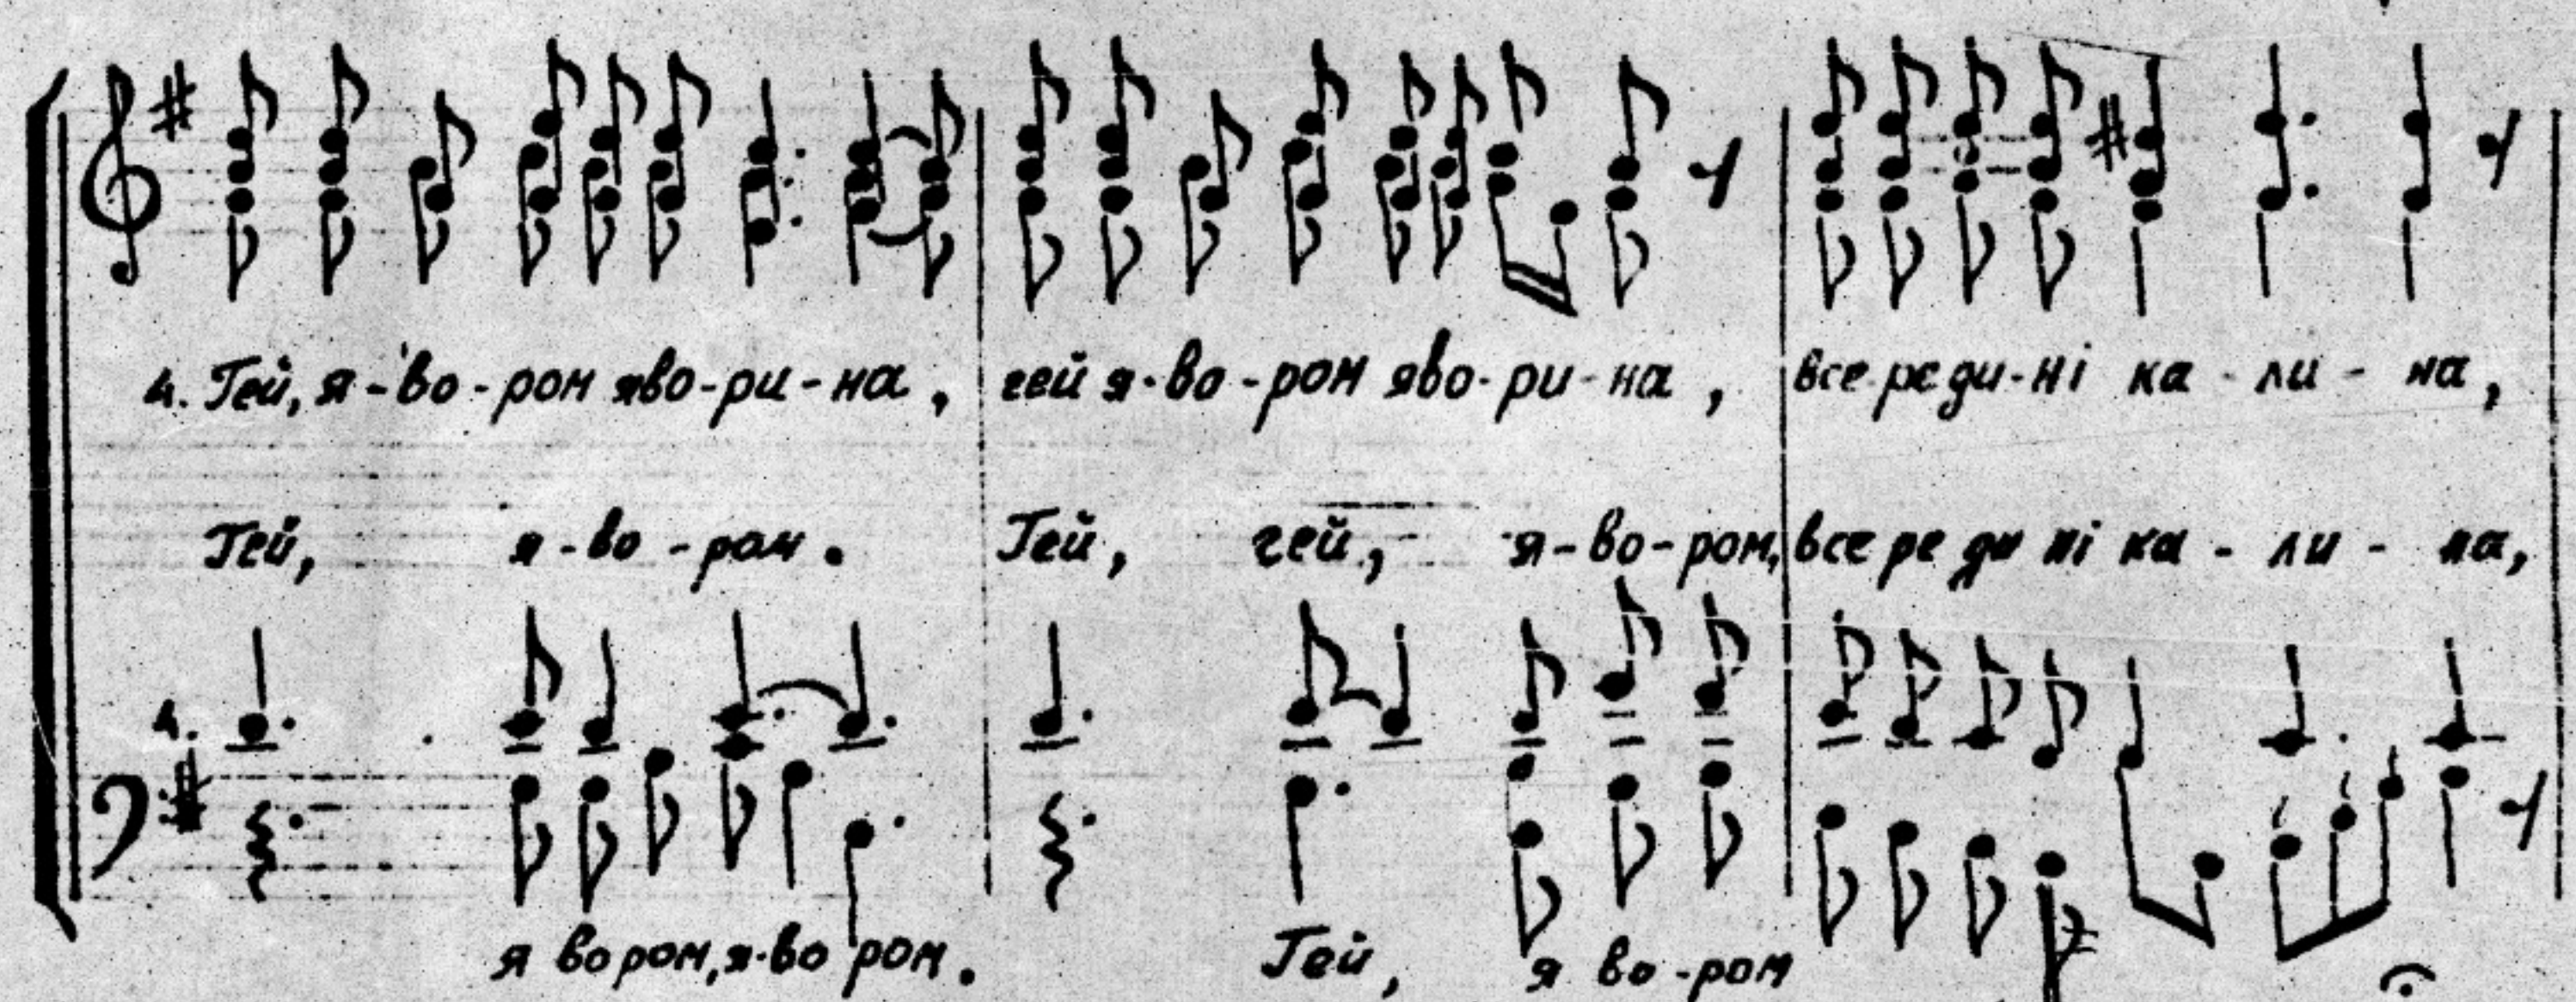 4. Гей, я-во-ром яво-ри-на, гей я-во-ром яво-ри-на, все реди-ні ка-ли-на,
Гей, я-во-ром. Гей, гей, я-во-ром, все ре ди ні ка-ли-на,
4.
я во ром, я-во ром. Гей, я во-ром